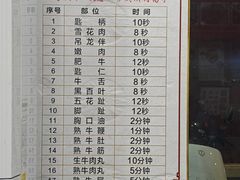 序号 部位 时间
1 匙柄 10秒
2 雪花肉 8秒
3 吊龙伴 10秒
4 嫩肉 8秒
5 肥牛 12秒
6 匙仁 10秒
7 牛舌 8秒
8 黑百叶 8秒
9 五花趾 12秒
10 脚趾 12秒
11 胸口油 2分钟
12 熟牛鞭 1分钟
13 熟牛腩 1分钟
14 熟牛筋 2分钟
15 生牛肉丸 10分钟
16 熟牛肉丸 5分钟
17 熟牛尾 5分钟